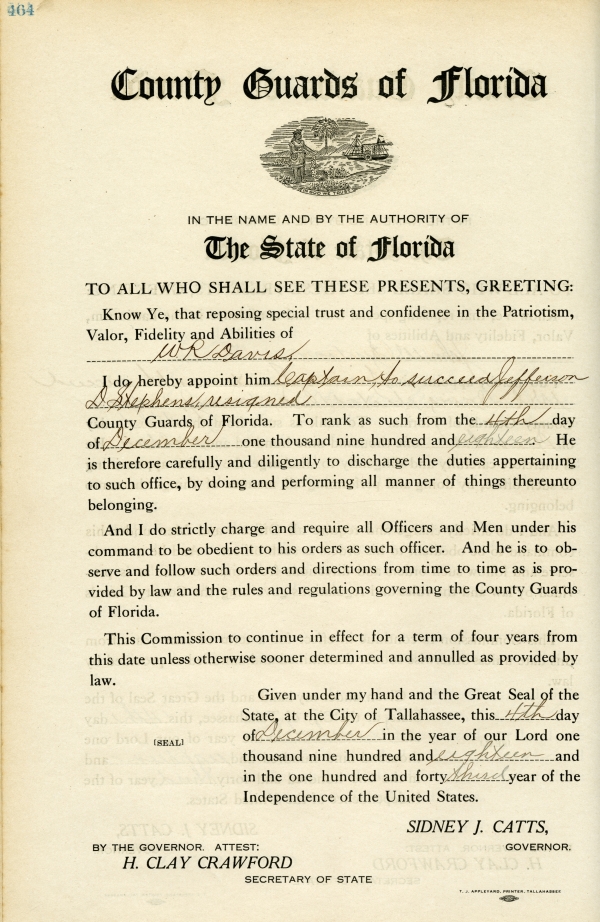 464
County Guards of Florida
IN GOD WE TRUST
IN THE NAME AND BY THE AUTHORITY OF
The State of Florida
TO ALL WHO SHALL SEE THESE PRESENTS, GREETING:
Know Ye, that reposing special trust and confidenee in the Patriotism,
Valor, Fidelity and Abilities of
W R Davis,
I do hereby appoint him Captain, to succeed Jefferson
D Stephens, resigned
County Guards of Florida. To rank as such from the 4th day
of December one thousand nine hundred and eighteen He
is therefore carefully and diligently to discharge the duties appertaining
to such office, by doing and performing all manner of things thereunto
belonging.
And I do strictly charge and require all Officers and Men under his
command to be obedient to his orders as such officer. And he is to ob-
serve and follow such orders and directions from time to time as is pro-
vided by law and the rules and regulations governing the County Guards
of Florida.
This Commission to continue in effect for a term of four years from
this date unless otherwise sooner determined and annulled as provided by
law.
Given under my hand and the Great Seal of the
State, at the City of Tallahassee, this 4th day
of December in the year of our Lord one
[SEAL]
thousand nine hundred and eighteen and
in the one hundred and forty third year of the
Independence of the United States.
SIDNEY J. CATTS,
GOVERNOR.
BY THE GOVERNOR. ATTEST:
H. CLAY CRAWFORD
SECRETARY OF STATE
T. J. APPLEYARD, PRINTER, TALLAHASSEE